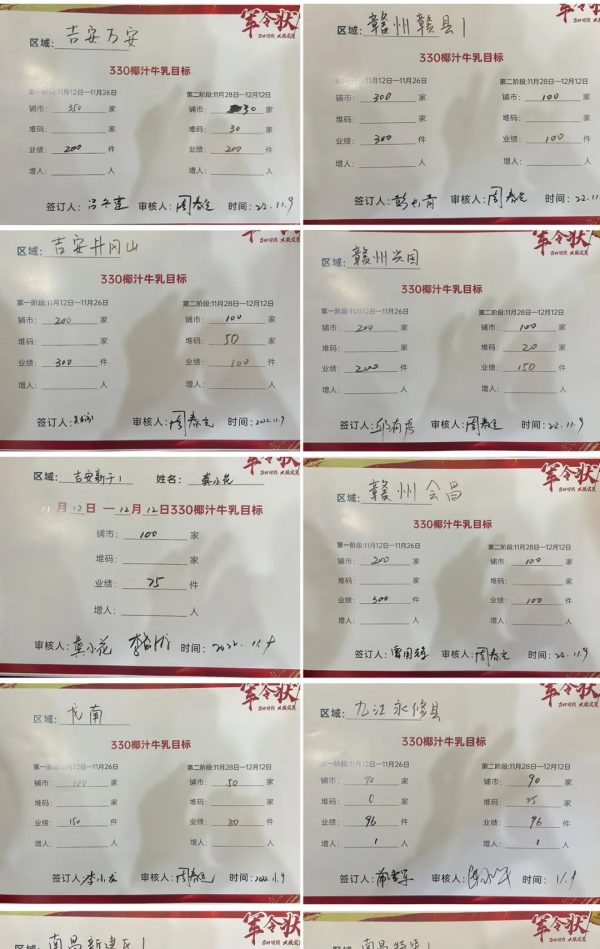 军令状
区域: 吉安万安
330椰汁牛乳目标
第一阶段:11月12日—11月26日 第二阶段:11月28日—12月12日
铺市: 350 家 铺市: 30 家
堆码: 家 堆码: 30 家
业绩: 200 件 业绩: 200 件
增人: 人 增人: 人
签订人: 审核人: 周春生 时间: 22.11.9
区域: 赣州赣县1
330椰汁牛乳目标
第一阶段:11月12日—11月26日 第二阶段:11月28日—12月12日
铺市: 300 家 铺市: 100 家
堆码: 家 堆码: 家
业绩: 300 件 业绩: 100 件
增人: 人 增人: 人
签订人: 审核人: 周春生 时间: 22.11
区域: 吉安井冈山
330椰汁牛乳目标
第一阶段:11月12日—11月26日 第二阶段:11月28日—12月12日
铺市: 200 家 铺市: 100 家
堆码: 家 堆码: 50 家
业绩: 300 件 业绩: 100 件
增人: 人 增人: 人
签订人: 审核人: 周春生 时间: 2022.11.9
军令状
区域: 赣州兴国
330椰汁牛乳目标
第一阶段:11月12日—11月26日 第二阶段:11月28日—12月12日
铺市: 200 家 铺市: 100 家
堆码: 家 堆码: 20 家
业绩: 200 件 业绩: 150 件
增人: 人 增人: 人
签订人: 邱有房 审核人: 周春生 时间: 22.11.9
军令状
区域: 吉安新干1 姓名: 龚小花
11月12日—12月12日330椰汁牛乳目标
铺市: 100 家
堆码: 家
业绩: 75 件
增人: 人
审核人: 龚小花 时间: 2022.11.9
军令状
区域: 赣州会昌
330椰汁牛乳目标
第一阶段:11月12日—11月26日 第二阶段:11月28日—12月12日
铺市: 200 家 铺市: 100 家
堆码: 家 堆码: 家
业绩: 300 件 业绩: 100 件
增人: 人 增人: 人
签订人: 审核人: 周春生 时间: 22.11.9
军令状
区域: 龙南
330椰汁牛乳目标
第一阶段:11月12日—11月26日 第二阶段:11月28日—12月12日
铺市: 100 家 铺市: 50 家
堆码: 家 堆码: 家
业绩: 150 件 业绩: 80 件
增人: 人 增人: 人
签订人: 李小龙 审核人: 周春生 时间: 2022.11.9
军令状
区域: 九江永修县
330椰汁牛乳目标
第一阶段:11月12日—11月26日 第二阶段:11月28日—12月12日
铺市: 90 家 铺市: 90 家
堆码: 0 家 堆码: 25 家
业绩: 96 件 业绩: 96 件
增人: 1 人 增人: 1 人
签订人: 审核人: 时间: 11.9
军令状
南昌新建区1
军令状
南昌